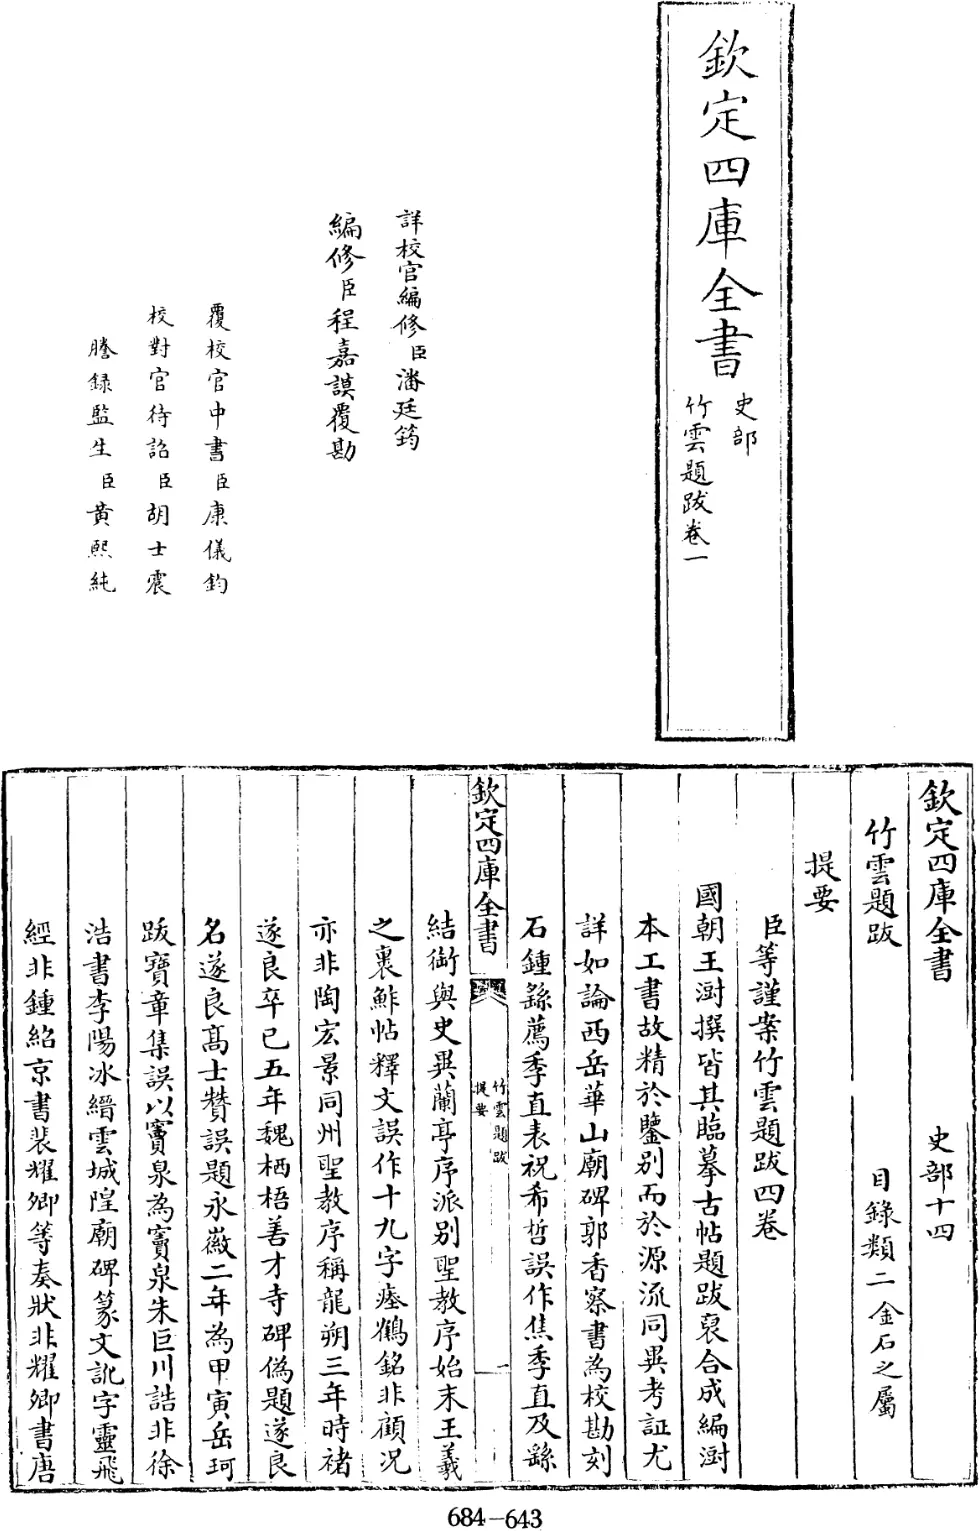 欽定四庫全書
史部
竹雲題跋卷一
詳校官編修臣潘廷筠
編修臣程嘉謨覆勘
覆校官中書臣康儀鈞
校對官待詔臣胡士震
謄錄監生臣黃熙純
欽定四庫全書 史部十四
竹雲題跋 目錄類二金石之屬
提要
臣等謹案竹雲題跋四卷
國朝王澍撰皆其臨摹古帖題跋裒合成編澍
本工書故精於鑒別而於源流同異考証尤
詳如論西岳華山廟碑郭香察書為校勘刻
石鍾繇薦季直表祝希哲誤作焦季直及繇
欽定四庫全書
竹雲題跋
提要
一
結銜與史異蘭亭序派別聖教序始末王羲
之裹鮓帖釋文誤作十九字瘞鶴銘非顧况
亦非陶宏景同州聖教序稱龍朔三年時褚
遂良卒已五年魏栖梧善才寺碑偽題遂良
名遂良高士贊誤題永徽二年為甲寅岳珂
跋寶章集誤以竇泉為竇泉朱巨川誥非徐
浩書李陽冰縉雲城隍廟碑篆文訛字靈飛
經非鍾紹京書裴耀卿等奏狀非耀卿書唐
684-643